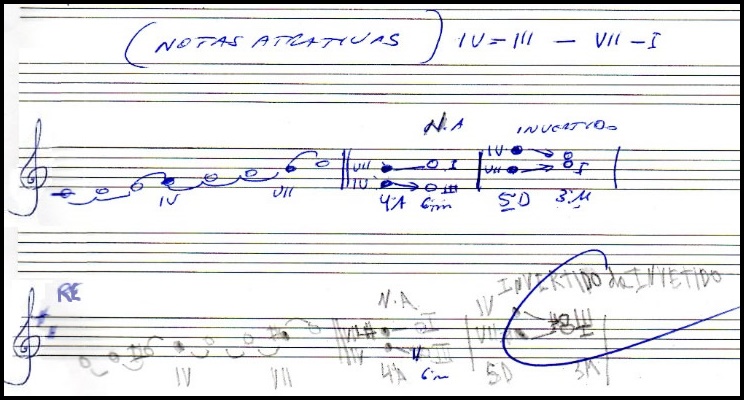 (NOTAS ATRATIVAS) IV=III - VII-I
N.A INVERTIDO
VII I IV VII I
IV III
IV VII 4ªA 6m 5D 3ªM
RE N.A INVERTIDO da INVETIDO
VII I IV
IV III VII
IV VII 4ªA 6m 5D 3M